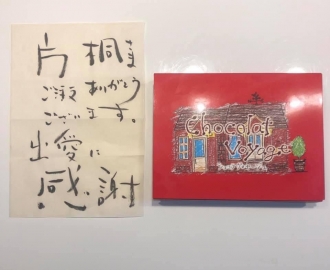 片桐さま
ご注文ありがとう
ございます。
出愛に
感謝
Chocolat
Voyage